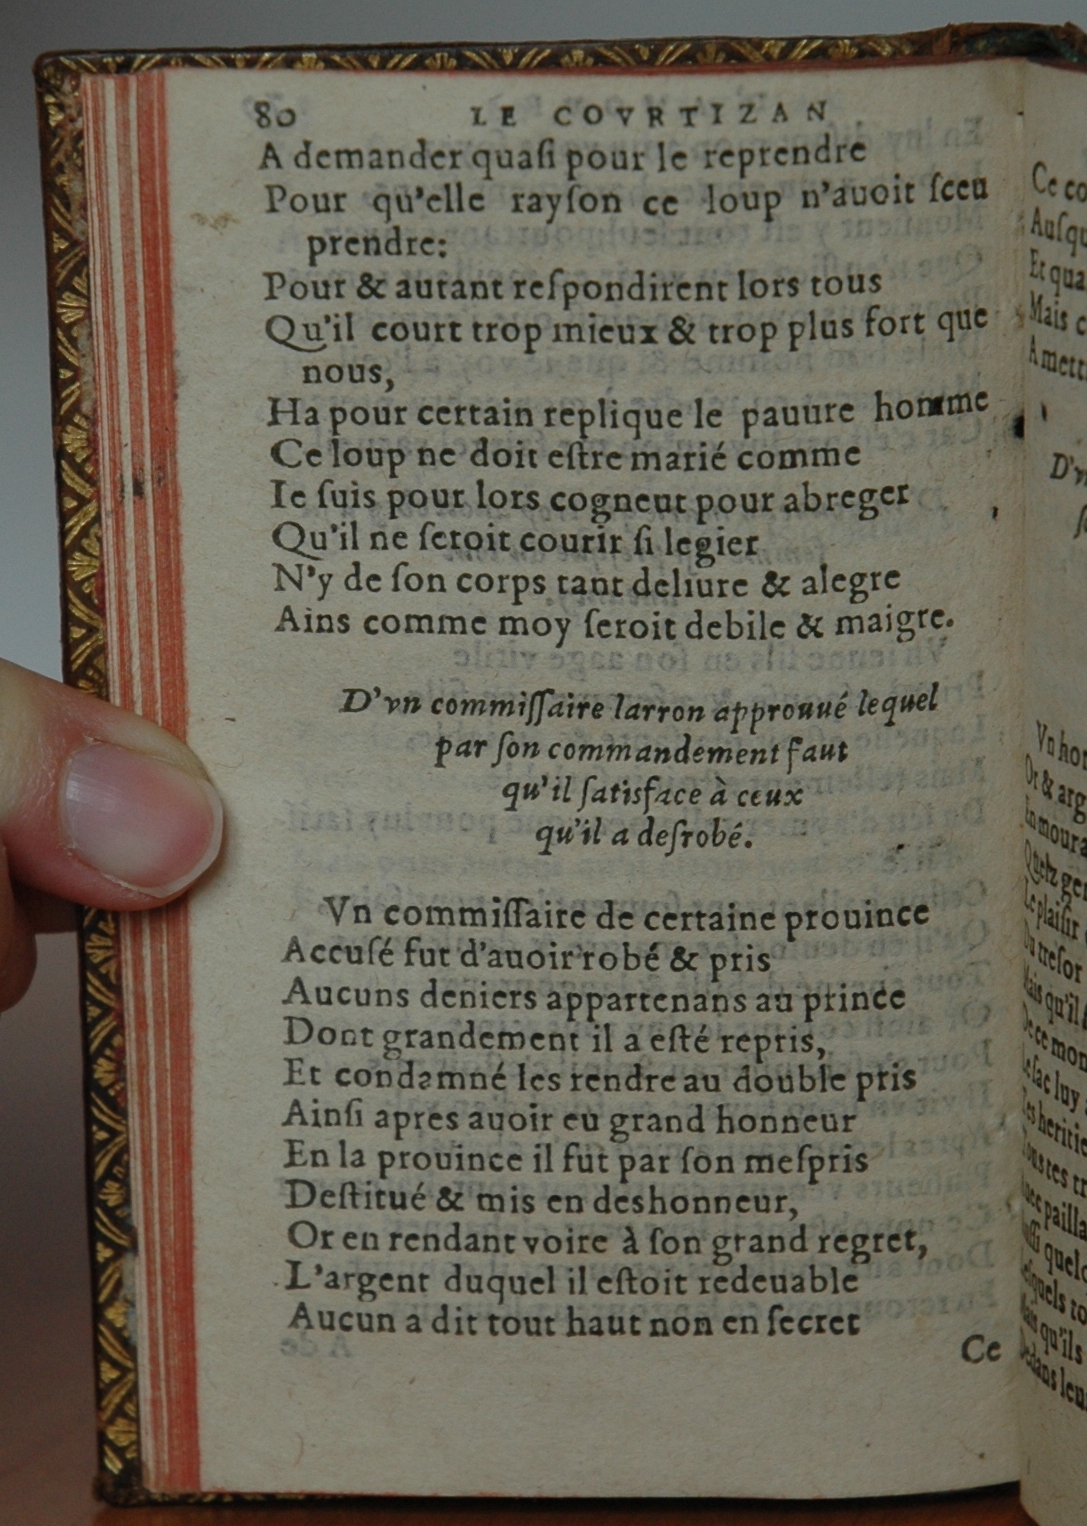 80 LE COVRTIZAN
A demander quaſi pour le reprendre
Pour qu'elle rayſon ce loup n'auoit ſceu
prendre:
Pour & autant reſpondirent lors tous
Qu'il court trop mieux & trop plus fort que
nous,
Ha pour certain replique le pauure homme
Ce loup ne doit eſtre marié comme
Ie ſuis pour lors cogneut pour abreger
Qu'il ne ſeroit courir ſi legier
N'y de ſon corps tant deliure & alegre
Ains comme moy ſeroit debile & maigre.
D'vn commiſſaire larron approuué lequel
par ſon commandement faut
qu'il ſatisface à ceux
qu'il a deſrobé.
Vn commiſſaire de certaine prouince
Accuſé fut d'auoir robé & pris
Aucuns deniers appartenans au prince
Dont grandement il a eſté repris,
Et condamné les rendre au double pris
Ainſi apres auoir eu grand honneur
En la prouince il fut par ſon meſpris
Deſtitué & mis en deshonneur,
Or en rendant voire à ſon grand regret,
L'argent duquel il eſtoit redeuable
Aucun a dit tout haut non en ſecret
Ce
Ce co
Auſqu
Et qua
Mais c
A mett
D'v
Vn hor
Or & arg
In moura
Quelz ger
Le plaiſir
Du treſor
Mais qu'il
De ce mon
Le ſac luy
Tes heritie
Tous tes tr
Auec pailla
Auſſi quelq
Leſquels to
Mais qu'ils
Dedans leu